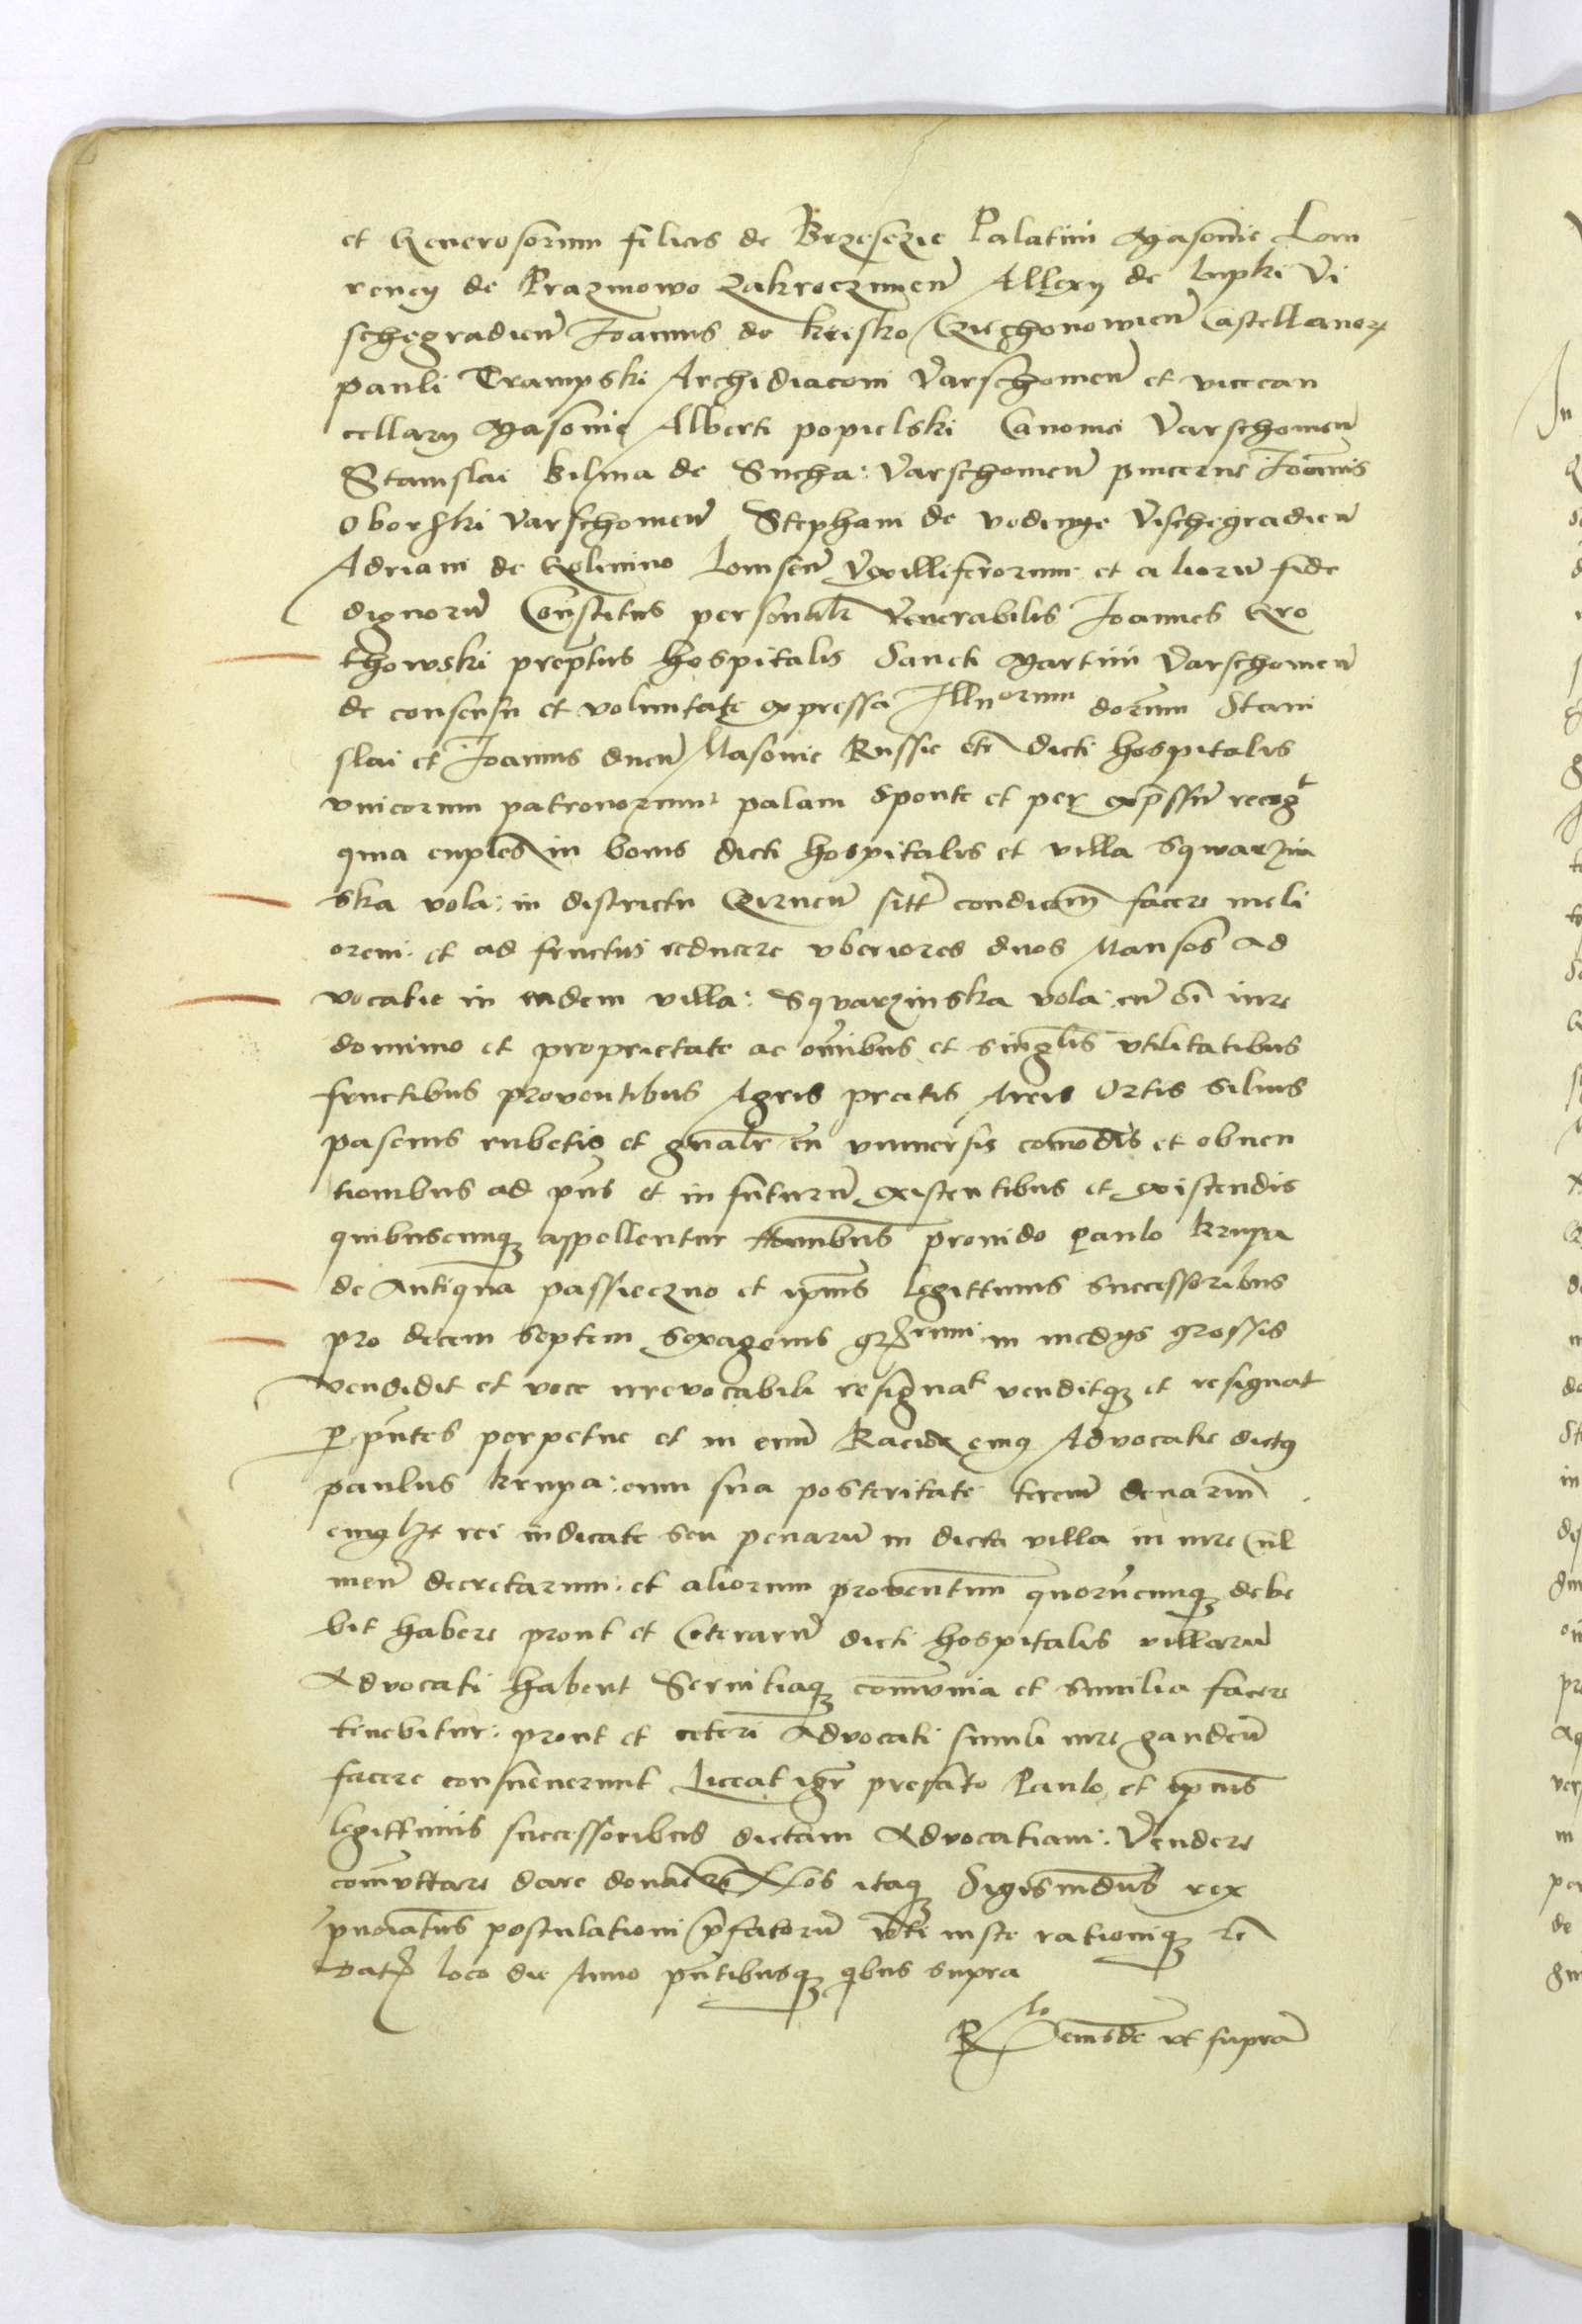 et Generosorum felicis de Brzesczie Palatini Masovie Lau
rencij de Prazmowo Zakroczimen Allexij de lupki Vi
schegradien Joannis de krisko Cziechonowien Castellanor
pauli Trampski Archidiaconi Varschovien et vicecan
cellarij Masovie Alberti popielski Canonici Varschovien
Stanislai bilina de Sucha: Varschovien pincerne Joannis
Oborski Varschovien Stephani de vodinye Vischegradien
Adriani de Golimino Lomsen Vexilliferorum et aliorum fide
dignorum Constitus personalr Venerabilis Joannes Gro
thowski preptus hospitalis Sancti Martini Varschovien
de consensu et voluntate expressa Illuorum dorum Stani
slai et Joannis ducu Masovie Russie etc dicti hospitalis
unicorum patronorum: palam sponte et per expssu recogt
quia cupies in bonis dicti hospitalis et villa Squarzin
ska vola: in districtu Czirnen sitt condicom facere meli
orem: et ad fructus reducere uberiores duos Mansos Ad
vocatie in eadem villa: Squarzinska vola: cu oi iure
dominio et proprietate ac omibus et singlis utilitatibus
fructibus proventibus Agris pratis Areis Ortis Silvis
pascuis rubetis et gnalr cu universis comodis et obuen
tionibus ad pns et in futuru existentibus et existendis
quibuscunq appellentur nominibus provido Paulo krupa
de Antiqua passieczno et ipius legittimis successoribus
pro decem septem sexagenis grrum in medijs grossis
vendidit et voce irrevocabili resignat venditq et resignat
p pntes perpetue et in evum Racioe eius Advocatie dictus
paulus krupa: cum sua posteritate terciu denarium
cuiuslibet rei iudicate seu penaru in dicta villa in iure Cul
men decretarum: et aliorum proventuum quorucunq debe
bit habere prout et Ceteraru dicti hospitalis villaru
Advocati habent Servitiaq comunia et similia facere
tenebitur: prout et ceteri Advocati simili iure gauden
facere consueverunt Liceat igr prefato Paulo et ipius
legittimis successoribus dictam Advocatiam: Vendere
comuttare dare donare etc Nos itaq Sigismudus rex
pnoiatus postulationi pfatoru uti iuste rationiq etc
Dat loco die Anno pntibusq qbus supra
Rlo eiusde ut supra